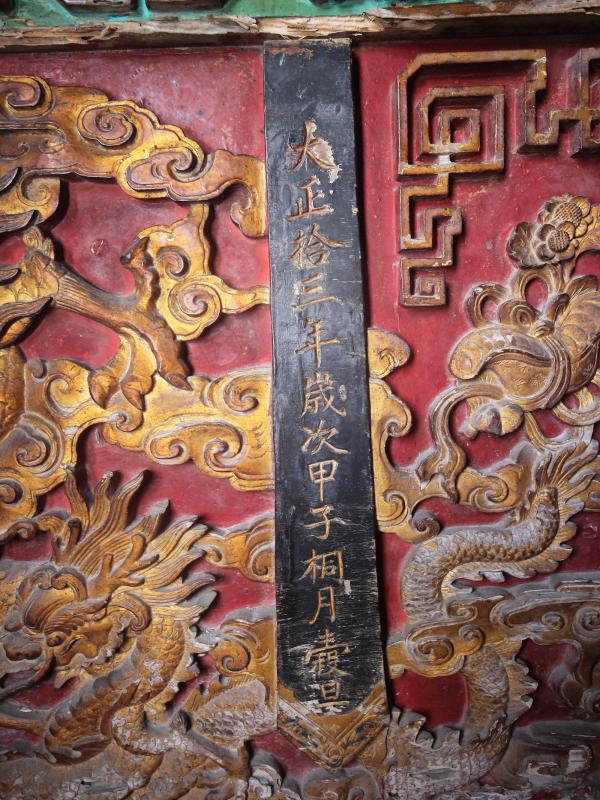 大正拾三年歲次甲子桐月穀旦